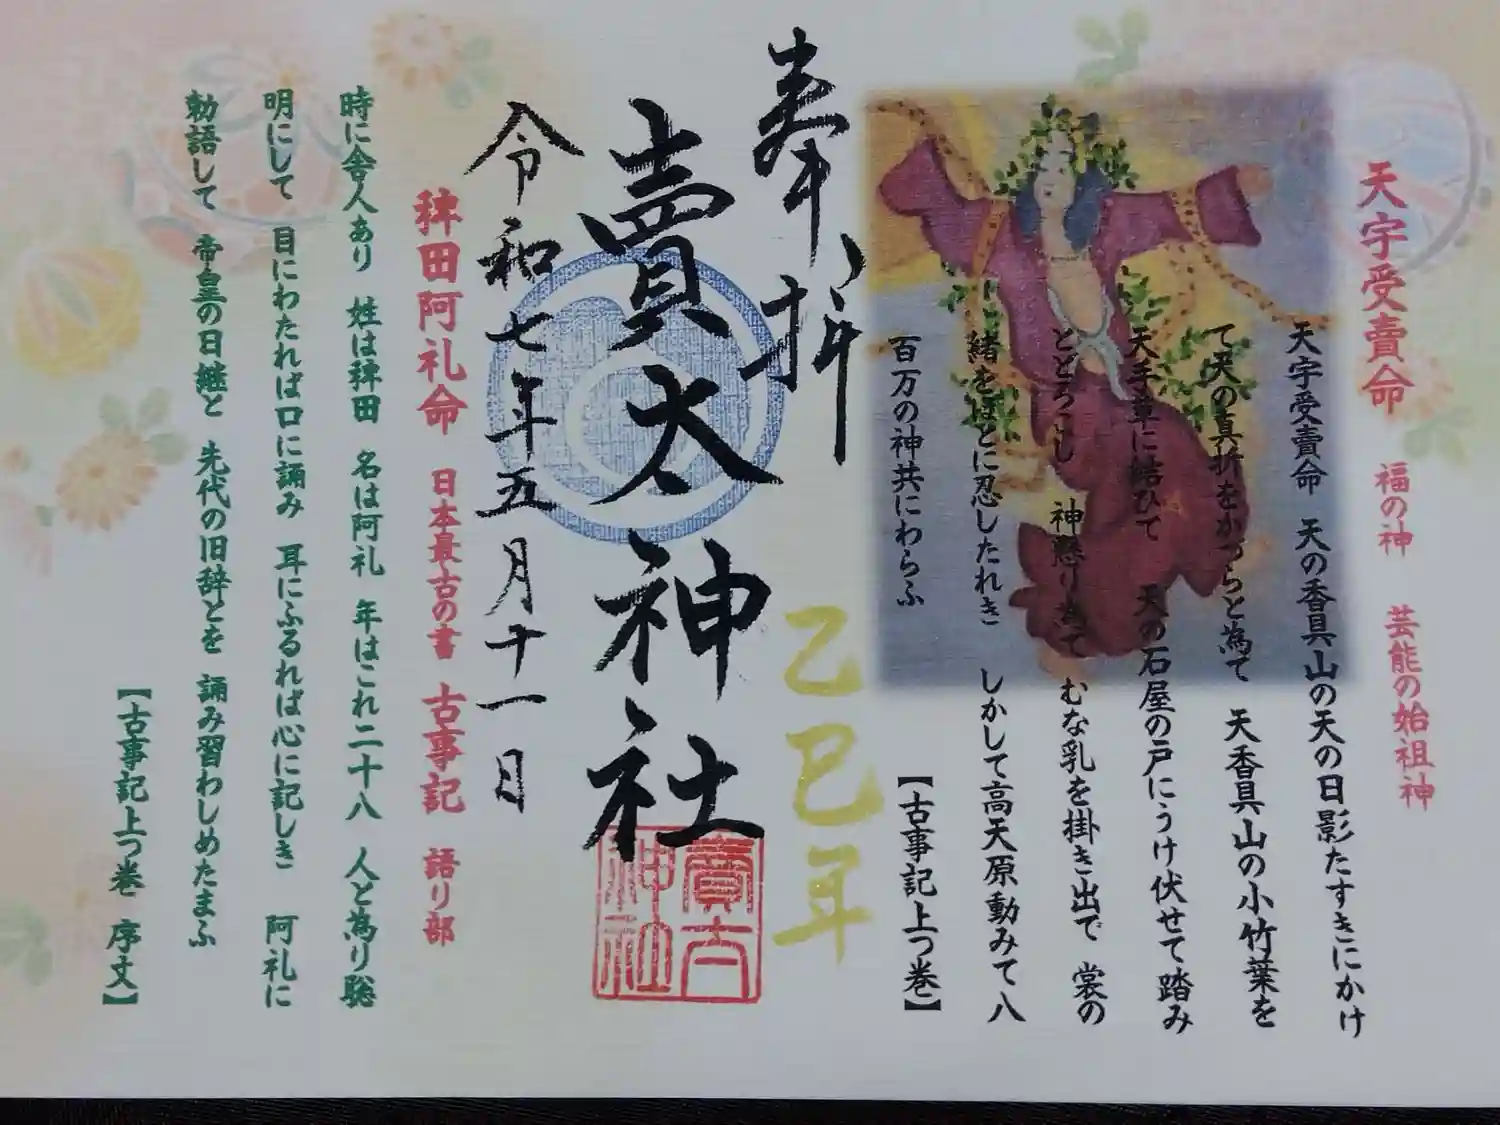 天宇受賣命 福の神 芸能の始祖神
天宇受賣命 天の香具山の天の日影たすきにかけ
て天の真折をかづらと為て 天香具山の小竹葉を
天手草に結ひて 天の石屋の戸にうけ伏せて踏み
とどろこし 神懸り為て むな乳を掛き出で 裳の
緒をほとに忍したれき しかして高天原動みて八
百万の神共にわらふ
【古事記上つ巻】
奉拝
乙巳年
賣太神社
賣太
神社
令和七年五月十一日
稗田阿礼命 日本最古の書 古事記 語り部
時に舎人あり 姓は稗田 名は阿礼 年はこれ二十八 人と為り聡
明にして 目にわたれば口に誦み 耳にふるれば心に記しき 阿礼に
勅語して 帝皇の日継と 先代の旧辞とを 誦み習わしめたまふ
【古事記上つ巻 序文】